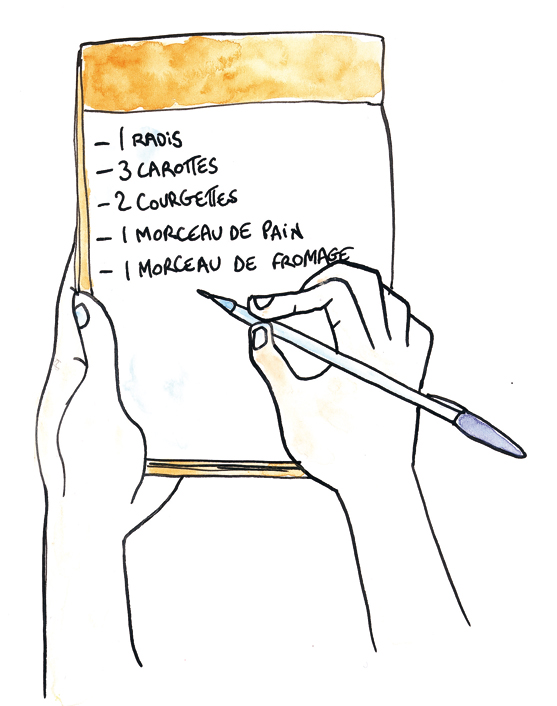 - 1 RADIS
- 3 CAROTTES
- 2 COURGETTES
- 1 MORCEAU DE PAIN
- 1 MORCEAU DE FROMAGE